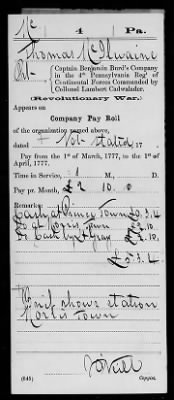 Mc 4 Pa.
Thomas McIlwaine
Pvt., Captain Benjamin Burd's Company
in the 4th Pennsylvania Reg't of
Continental Forces Commanded by
Collonel Lambert Cadwalader.
(Revolutionary War.)
Appears on
Company Pay Roll
of the organization named above,
dated Not stated 17
Pay from the 1st of March, 1777, to the 1st of
April, 1777.
Time in Service, 1 M., D.
Pay pr. Month, £2 10. 0
Remarks:
Cash at Prince Town £0. 3. 4
Do at Morris Town
Do Cash by 2. 10.
£5. 3. 4
shows station
Morris Town
(645) Copyist.